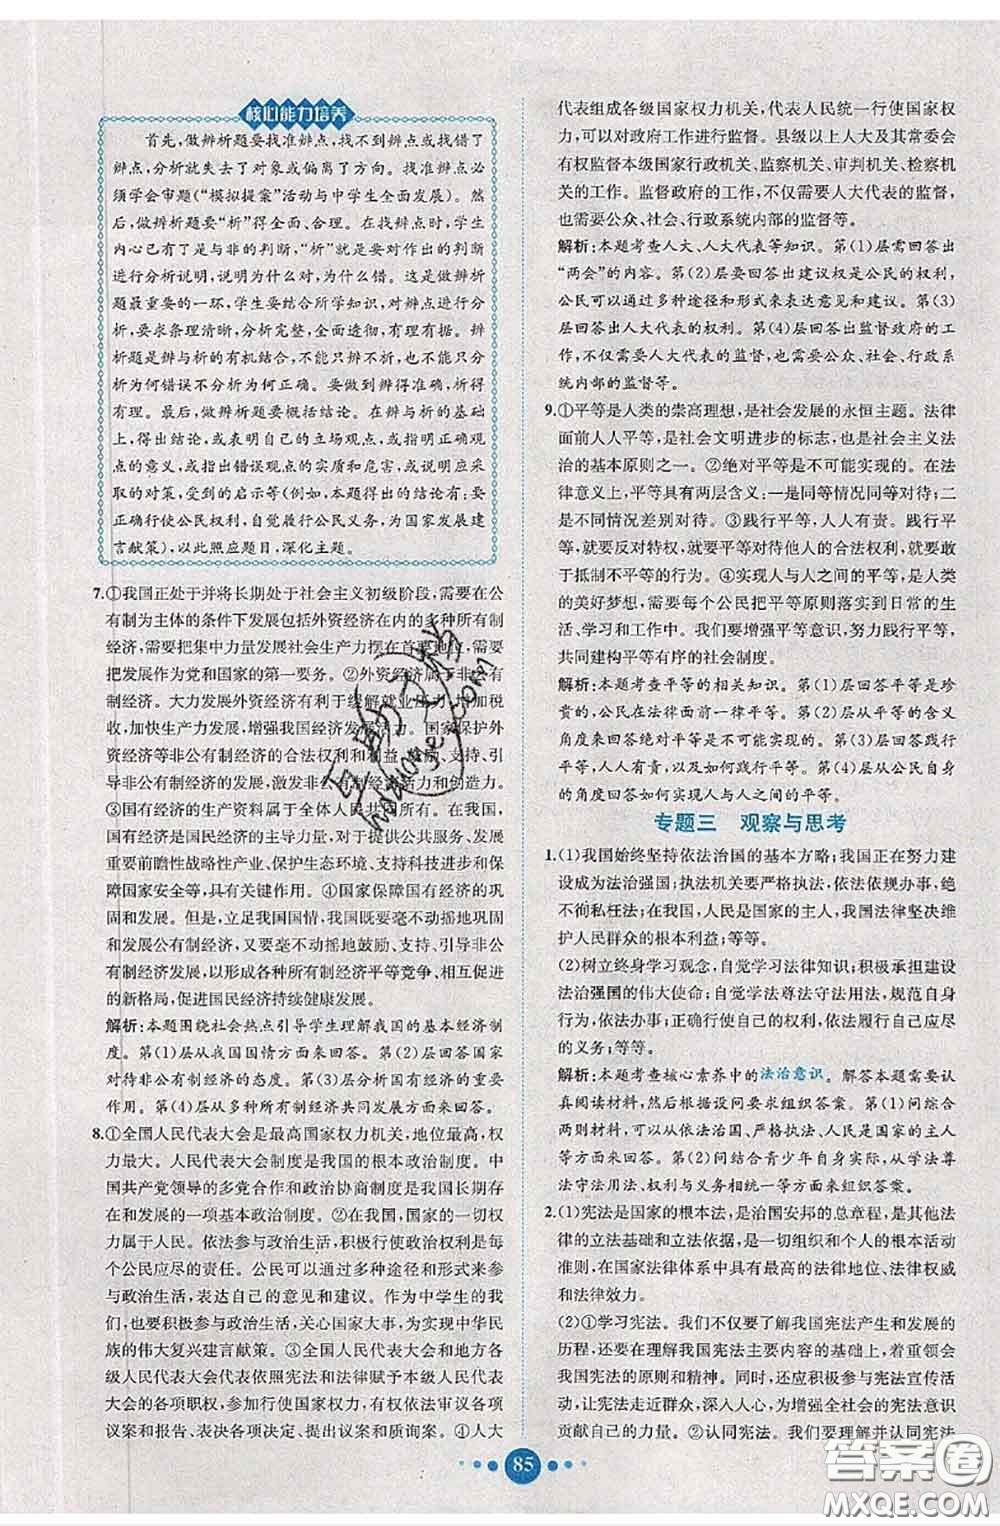 核心能力培养
首先,做辨析题要找准辨点,找不到辨点或找错了
辨点,分析就失去了对象或偏离了方向。找准辨点必
须学会审题(“模拟提案”活动与中学生全面发展)。然
后,做辨析题要“析”得全面、合理。在找辨点时,学生
内心已有了是与非的判断,“析”就是要对作出的判断
进行分析说明,说明为什么对,为什么错。这是做辨析
题最重要的一环,学生要结合所学知识,对辨点进行分
析,要求条理清晰,分析完整,全面透彻,有理有据。辨
析题是辨与析的有机结合,不能只辨不析,也不能只分
析为何错误不分析为何正确。要做到辨得准确,析得
有理。最后,做辨析题要概括结论。在辨与析的基础
上,得出结论,或表明自己的立场观点,或指明正确观
点的意义,或指出错误观点的实质和危害,或说明应采
取的对策,受到的启示等(例如,本题得出的结论有:要
正确行使公民权利,自觉履行公民义务,为国家发展建
言献策),以此照应题目,深化主题。
7.①我国正处于并将长期处于社会主义初级阶段,需要在公
有制为主体的条件下发展包括外资经济在内的多种所有制
经济,需要把集中力量发展社会生产力摆在首要地位,需要
把发展作为党和国家的第一要务。②外资经济属于非公有
制经济。大力发展外资经济有利于缓解就业压力、增加税
收,加快生产力发展,增强我国经济发展活力。国家保护外
资经济等非公有制经济的合法权利和利益,鼓励、支持、引
导非公有制经济的发展,激发非公有制经济活力和创造力。
③国有经济的生产资料属于全体人民共同所有。在我国,
国有经济是国民经济的主导力量,对于提供公共服务、发展
重要前瞻性战略性产业、保护生态环境、支持科技进步和保
障国家安全等,具有关键作用。④国家保障国有经济的巩
固和发展。但是,立足我国国情,我国既要毫不动摇地巩固
和发展公有制经济,又要毫不动摇地鼓励、支持、引导非公
有制经济发展,以形成各种所有制经济平等竞争、相互促进
的新格局,促进国民经济持续健康发展。
解析:本题围绕社会热点引导学生理解我国的基本经济制
度。第(1)层从我国国情方面来回答。第(2)层回答国家
对待非公有制经济的态度。第(3)层分析国有经济的重要
作用。第(4)层从多种所有制经济共同发展方面来回答。
8.①全国人民代表大会是最高国家权力机关,地位最高,权
力最大。人民代表大会制度是我国的根本政治制度。中
国共产党领导的多党合作和政治协商制度是我国长期存
在和发展的一项基本政治制度。②在我国,国家的一切权
力属于人民。依法参与政治生活,积极行使政治权利是每
个公民应尽的责任。公民可以通过多种途径和形式来参
与政治生活,表达自己的意见和建议。作为中学生的我
们,也要积极参与政治生活,关心国家大事,为实现中华民
族的伟大复兴建言献策。③全国人民代表大会和地方各
级人民代表大会代表依照宪法和法律赋予本级人民代表大
会的各项职权,参加行使国家权力,有权依法审议各项
议案和报告、表决各项决定、提出议案和质询案。④人大
代表组成各级国家权力机关,代表人民统一行使国家权
力,可以对政府工作进行监督。县级以上人大及其常委会
有权监督本级国家行政机关、监察机关、审判机关、检察机关
的工作。监督政府的工作,不仅需要人大代表的监督,
也需要公众、社会、行政系统内部的监督等。
解析:本题考查人大、人大代表等知识。第(1)层需回答出
“两会”的内容。第(2)层要回答出建议权是公民的权利,
公民可以通过多种途径和形式来表达意见和建议。第(3)
层回答出人大代表的权利。第(4)层回答出监督政府的工
作,不仅需要人大代表的监督,也需要公众、社会、行政系
统内部的监督等。
9.①平等是人类的崇高理想,是社会发展的永恒主题。法律
面前人人平等,是社会文明进步的标志,也是社会主义法
治的基本原则之一。②绝对平等是不可能实现的。在法
律意义上,平等具有两层含义:一是同等情况同等对待;二
是不同情况差别对待。③践行平等,人人有责。践行平
等,就要反对特权,就要平等对待他人的合法权利,就要敢
于抵制不平等的行为。④实现人与人之间的平等,是人类
的美好梦想,需要每个公民把平等原则落实到日常的生
活、学习和工作中。我们要增强平等意识,努力践行平等,
共同建构平等有序的社会制度。
解析:本题考查平等的相关知识。第(1)层回答平等是珍
贵的,公民在法律面前一律平等。第(2)层从平等的含义
角度来回答绝对平等是不可能实现的。第(3)层回答践行
平等,人人有责,以及如何践行平等。第(4)层从公民自身
的角度回答如何实现人与人之间的平等。
专题三 观察与思考
1.(1)我国始终坚持依法治国的基本方略;我国正在努力建
设成为法治强国;执法机关要严格执法,依法依规办事,绝
不徇私枉法;在我国,人民是国家的主人,我国法律坚决维
护人民群众的根本利益;等等。
(2)树立终身学习观念,自觉学习法律知识;积极承担建设
法治强国的伟大使命;自觉学法尊法守法用法,规范自身行
为,依法办事;正确行使自己的权利,依法履行自己应尽
的义务;等等。
解析:本题考查核心素养中的法治意识。解答本题需要认
真阅读材料,然后根据设问要求组织答案。第(1)问综合
两则材料,可以从依法治国、严格执法、人民是国家的主人
等方面来回答。第(2)问结合青少年自身实际,从学法尊法
守法用法、权利与义务相统一等方面来组织答案。
2.(1)宪法是国家的根本法,是治国安邦的总章程,是其他法
律的立法基础和立法依据,是一切组织和个人的根本活动
准则,在国家法律体系中具有最高的法律地位、法律权威
和法律效力。
(2)①学习宪法。我们不仅要了解我国宪法产生和发展的
历程,还要在理解我国宪法主要内容的基础上,着重领会
我国宪法的原则和精神。此外,还应积极参与宪法宣传活动,
让宪法走近群众,深入人心,为增强全社会的宪法意识
贡献自己的力量。②认同宪法。我们要理解并认同宪法
85
答案圈
MXQE.COM